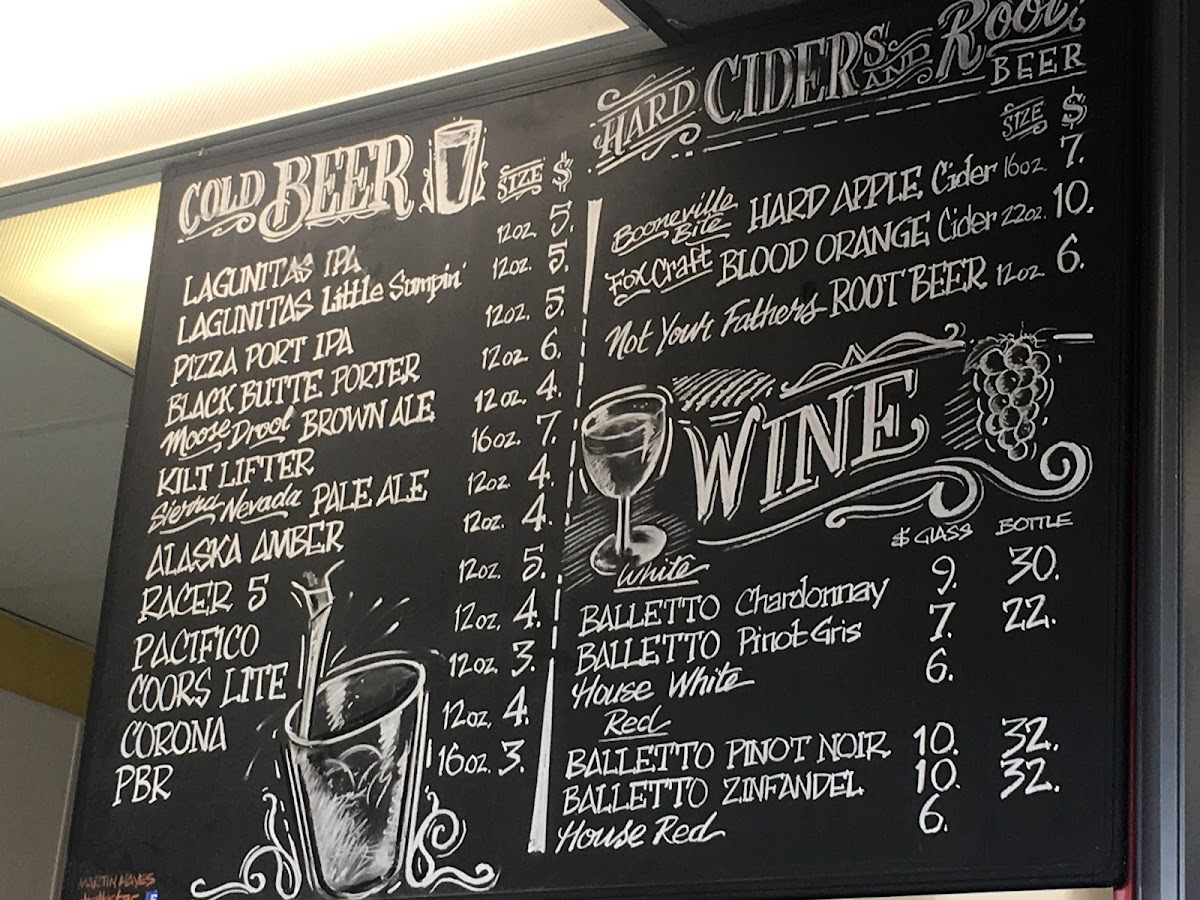 COLD BEER SIZE $
LAGUNITAS IPA 12oz. 5.
LAGUNITAS Little Sumpin' 12oz. 5.
PIZZA PORT IPA 12oz. 5.
BLACK BUTTE PORTER 12oz. 6.
Moose Drool BROWN ALE 12oz. 4.
KILT LIFTER 16oz. 7.
Sierra Nevada PALE ALE 12oz. 4.
ALASKA AMBER 12oz. 4.
RACER 5 12oz. 5.
PACIFICO 12oz. 4.
COORS LITE 12oz. 3.
CORONA 12oz. 4.
PBR 16oz. 3.
MARTIN HAYES
HARD CIDERS AND Root
BEER
SIZE $
Booneville Bite HARD APPLE Cider 16oz 7.
Fox Craft BLOOD ORANGE Cider 22oz. 10.
Not Your Fathers ROOT BEER 12oz 6.
WINE
$ GLASS BOTTLE
White
BALLETTO Chardonnay 9. 30.
BALLETTO Pinot Gris 7. 22.
House White 6.
Red
BALLETTO PINOT NOIR 10. 32.
BALLETTO ZINFANDEL 10. 32.
House Red 6.